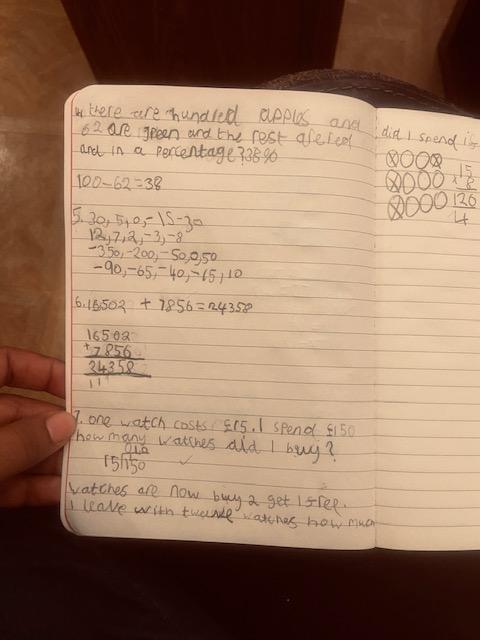 4. there are hundred apples and
62 are green and the rest are red
and in a percentage? 38%
100-62=38
5. 30, 5, 0, -15 -30
12, 7, 2, -3, -8
-350, -200, -50, 0, 50
-90, -65, -40, -15, 10
6. 16502 + 7856 = 24358
16502
+7856
24358
11
7. one watch costs £15. I spend £150
how many watches did I buy?
010
15)150
watches are now buy 2 get 1 free.
I leave with twelve watches how much
did I spend
15
× 8
120
4